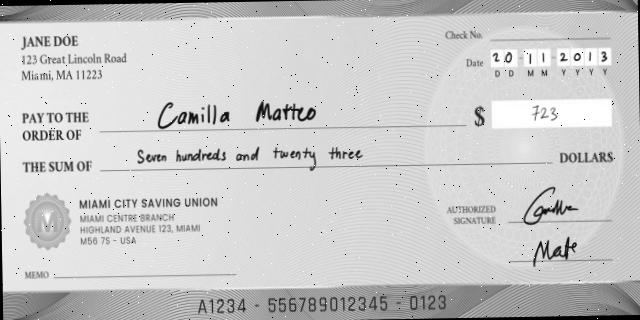 JANE DOE
123 Great Lincoln Road
Miami, MA 11223
Check No.
Date 20 11 2013
D D M M Y Y Y Y
PAY TO THE ORDER OF Camilla Matteo $ 723
THE SUM OF Seven hundreds and twenty three DOLLARS
MIAMI CITY SAVING UNION
MIAMI CENTRE BRANCH
HIGHLAND AVENUE 123, MIAMI
M56 7S - USA
AUTHORIZED SIGNATURE
MEMO
A1234 - 556789012345 - 0123